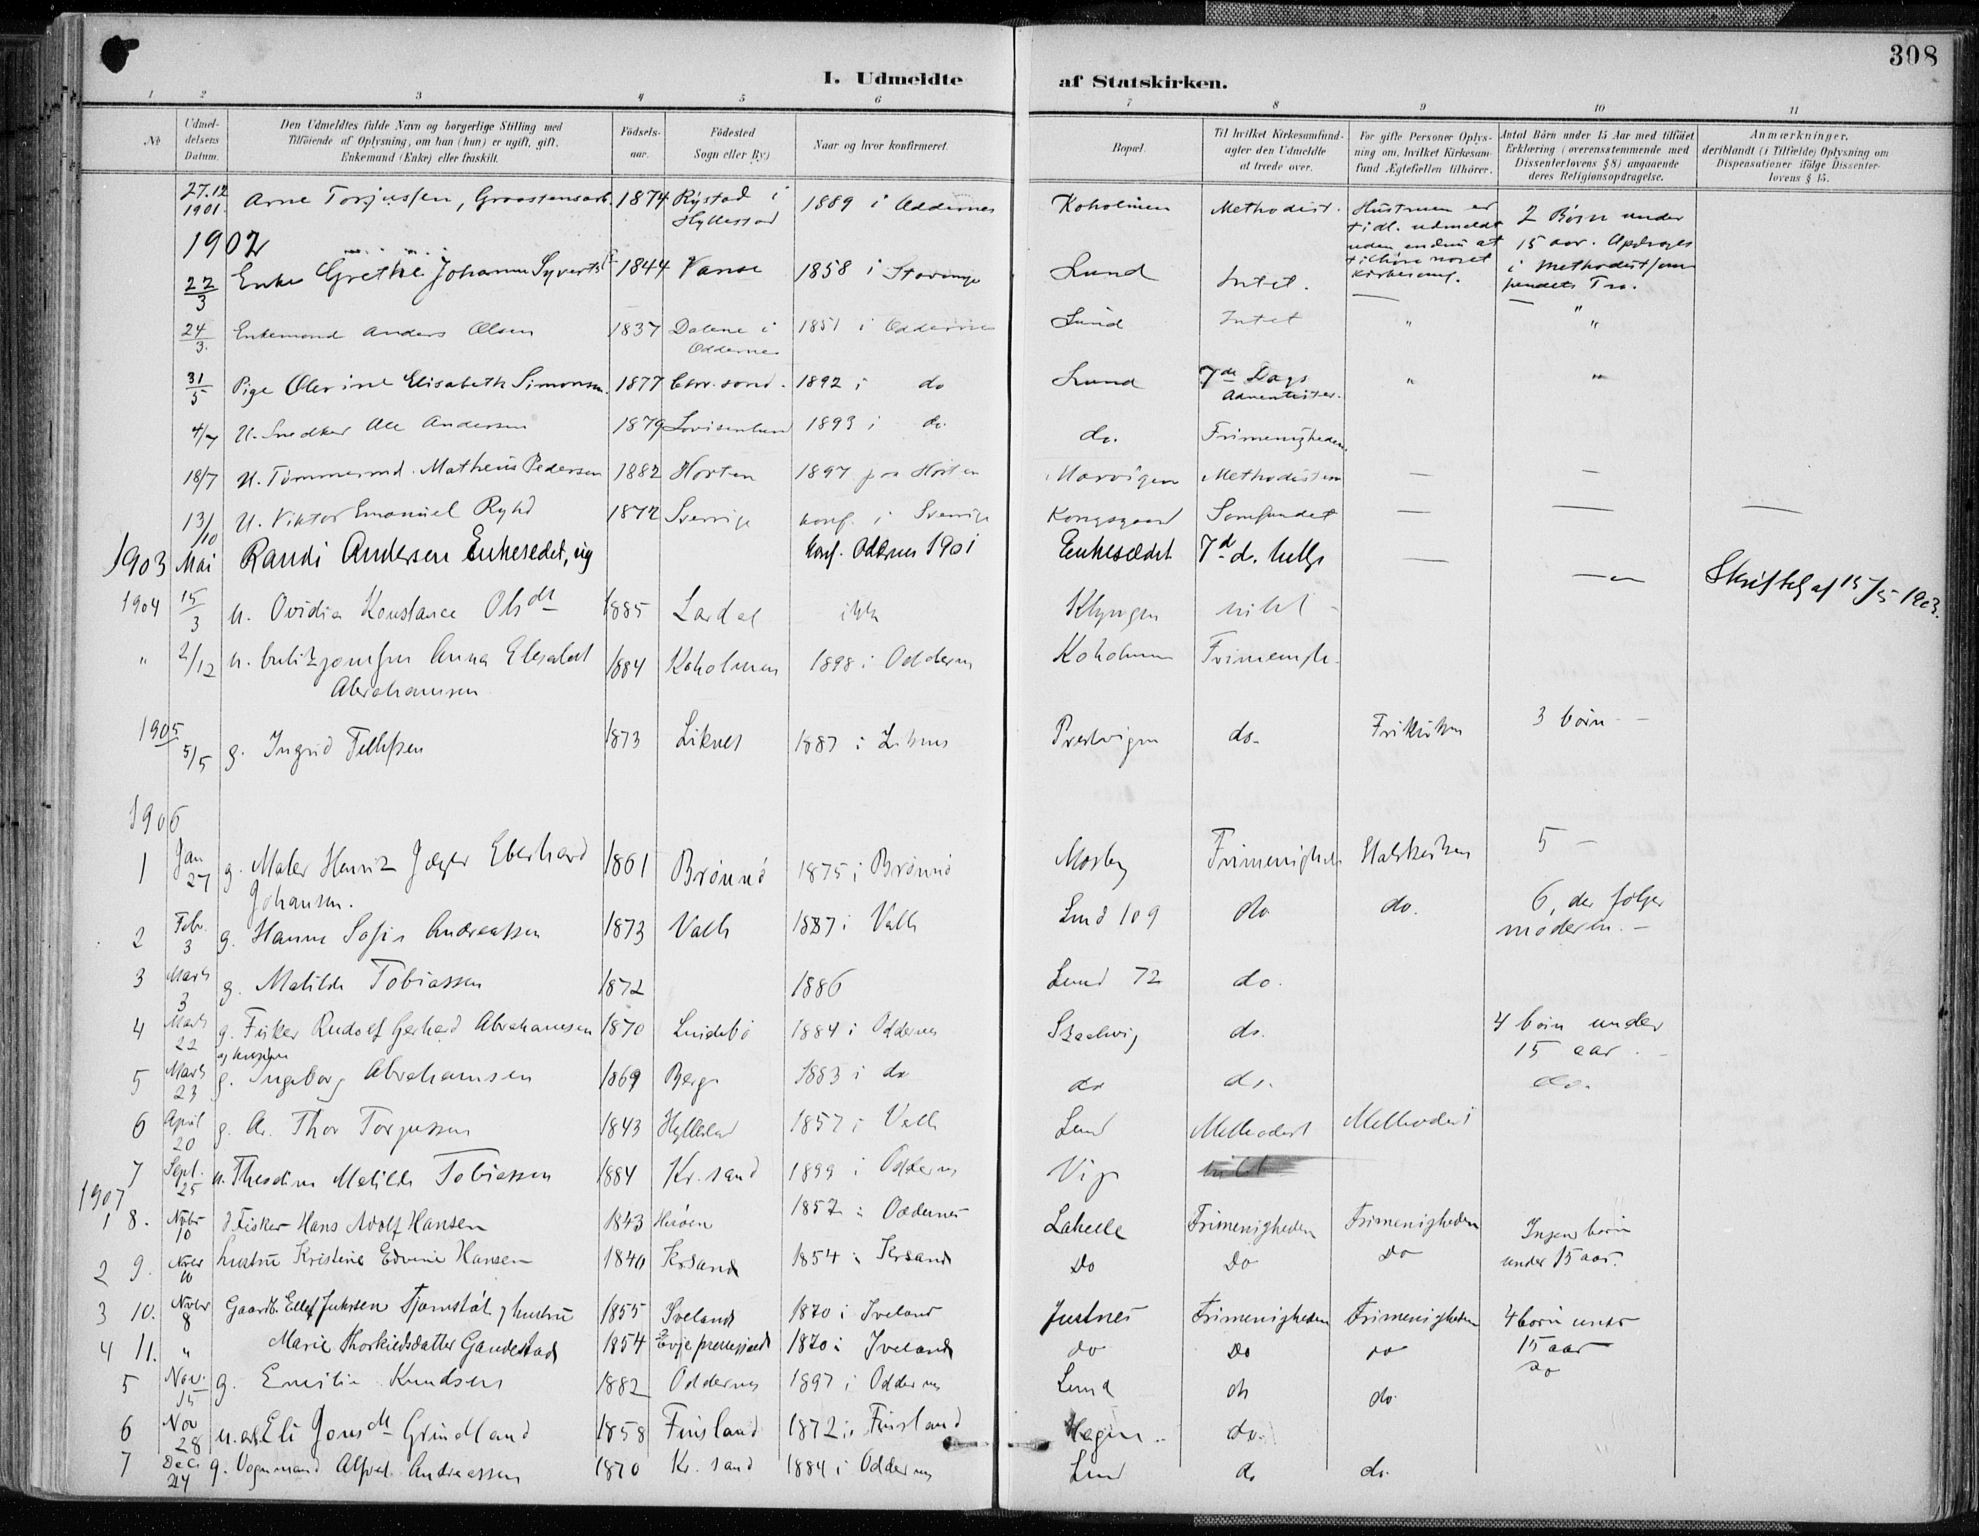 308
I. Udmeldte af Statskirken.
1 2 3 4 5 6 7 8 9 10 11
No
Udmeldelsens Datum.
Den Udmeldtes fulde Navn og borgerlige Stilling med
Tilføiende af Oplysning, om han (hun) er ugift, gift,
Enkemand (Enke) eller fraskilt.
Fødselsaar.
Fødested
Sogn eller By)
Naar og hvor konfirmeret.
Bopæl.
Til hvilket Kirkesamfund
agter den Udmeldte
at træde over.
For gifte Personer Oplysning om, hvilket Kirkesamfund Ægtefællen tilhører.
Antal Børn under 15 Aar med tilføiet
Erklæring (overensstemmende med
Dissenterlovens § 8) angaaende
deres Religionsopdragelse.
Anmærkninger,
deriblandt (i Tilfælde) Oplysning om
Dispensationer ifølge Dissenterlovens § 15.
27.12 1901. Arne Torjussen, 1874 Rystad i Hyllestad 1889 i Oddernes Koholmen Methodist. Hustruen er tidl. udmeldt uden endnu at tilhøre noget Kirkesamf. 2 Børn under 15 aar. Opdrages i Methodistsamfundets Tro.
1902
22/3 Enke Grethe Johanne 1844 Vanse 1858 i Lund Intet. —
24/3. Enkemand Anders Olsen 1837 Dalene i Oddernes 1851 i Oddernes Lund Intet " "
31/5 Pige Olevine Elisabeth Simonsen. 1877 1892 i do Lund 7de Dags Adventister. " "
4/7 U. Snedker Ole Andersen 1879 Lovisenlund 1893 i do do. Frimenigheden.
18/7 U. Matheus Pedersen 1882 Horten 1897 paa Horten Marvigen Methodisten — —
13/10 U. Viktor Emanuel 1872 Sverrige konf. i Sverrige Kongsgaard Samfundet — — —
1903 Mai Randi Andersen Enkesedet, ug konf. Oddernes 1901 Enkesædet 7d d. — —
1904 15/3 u. Ovidia Konstance Olsdt 1885 Lardal ikke
" 2/12 u. Anna Elisabet Abrahamsen 1884 Koholmen 1898 i Oddernes Koholmen Frimenigh.
1905 5/5 g. Ingrid Tellefsen 1873 Liknes 1887 i Liknes do. Frikirken 3 børn —
1906
1 Jan 27 g. Maler Henrik Jæger Eberhard Johansen. 1861 Brønnø 1875 i Brønnø Mosby Frimenighed Statskirken 5 —
2 Febr. 3 g. Hanne Sofie Andreassen 1873 Valle 1887 i Valle Lund 109 do do. 6, der følger moderen. —
3 Marts 3 g. Matilde Tobiassen 1872 1886 Lund 72 do.
4 Marts 22 g. Fisker Rudolf Gerhard Abrahamsen 1870 Lindebø 1884 i Oddernes do. 4 børn under 15 aar. —
og hustru
5 Marts 23 g. Ingeborg Abrahamsen 1869 Berge 1883 i do do do. do.
6 April 20 g. Thor Torjussen 1843 Hyllestad 1857 i Valle Lund Methodist Methodist
7 Sept. 25 u. Thesdine Matilde Tobiassen 1884 Kr. sand 1899 i Oddernes
1907
1 8. Novbr 10 Fisker Hans Adolf Hansen 1843 1857 i Oddernes Lahelle Frimenigheden Frimenigheden Ingen børn under 15 aar.
2 9. Novbr 10 hustru Kristine Edvine Hansen 1840 Krsand 1854 i Krsand Do Do Do
3 10. Novbr 8 Gaardb. Ellef Tjomstøl og hustru 1855 Iveland 1870 i Iveland Justnes Frimenigheden Frimenigheden 4 børn under 15 aar
4 11. " Marie 1854 Evje præstegjeld 1870 i Iveland do Do do do
5 Nov. 15 g. Emilie Knudsen 1882 Oddernes 1897 i Oddernes Lund do do.
6 Nov 28 Eli Jonsdt Grindland 1858 Finsland 1872 i Finsland Hagen do.
7 Dec. 24 g. Vognmand Alfred Andreassen 1870 Kr. sand 1884 i Oddernes Lund do do.